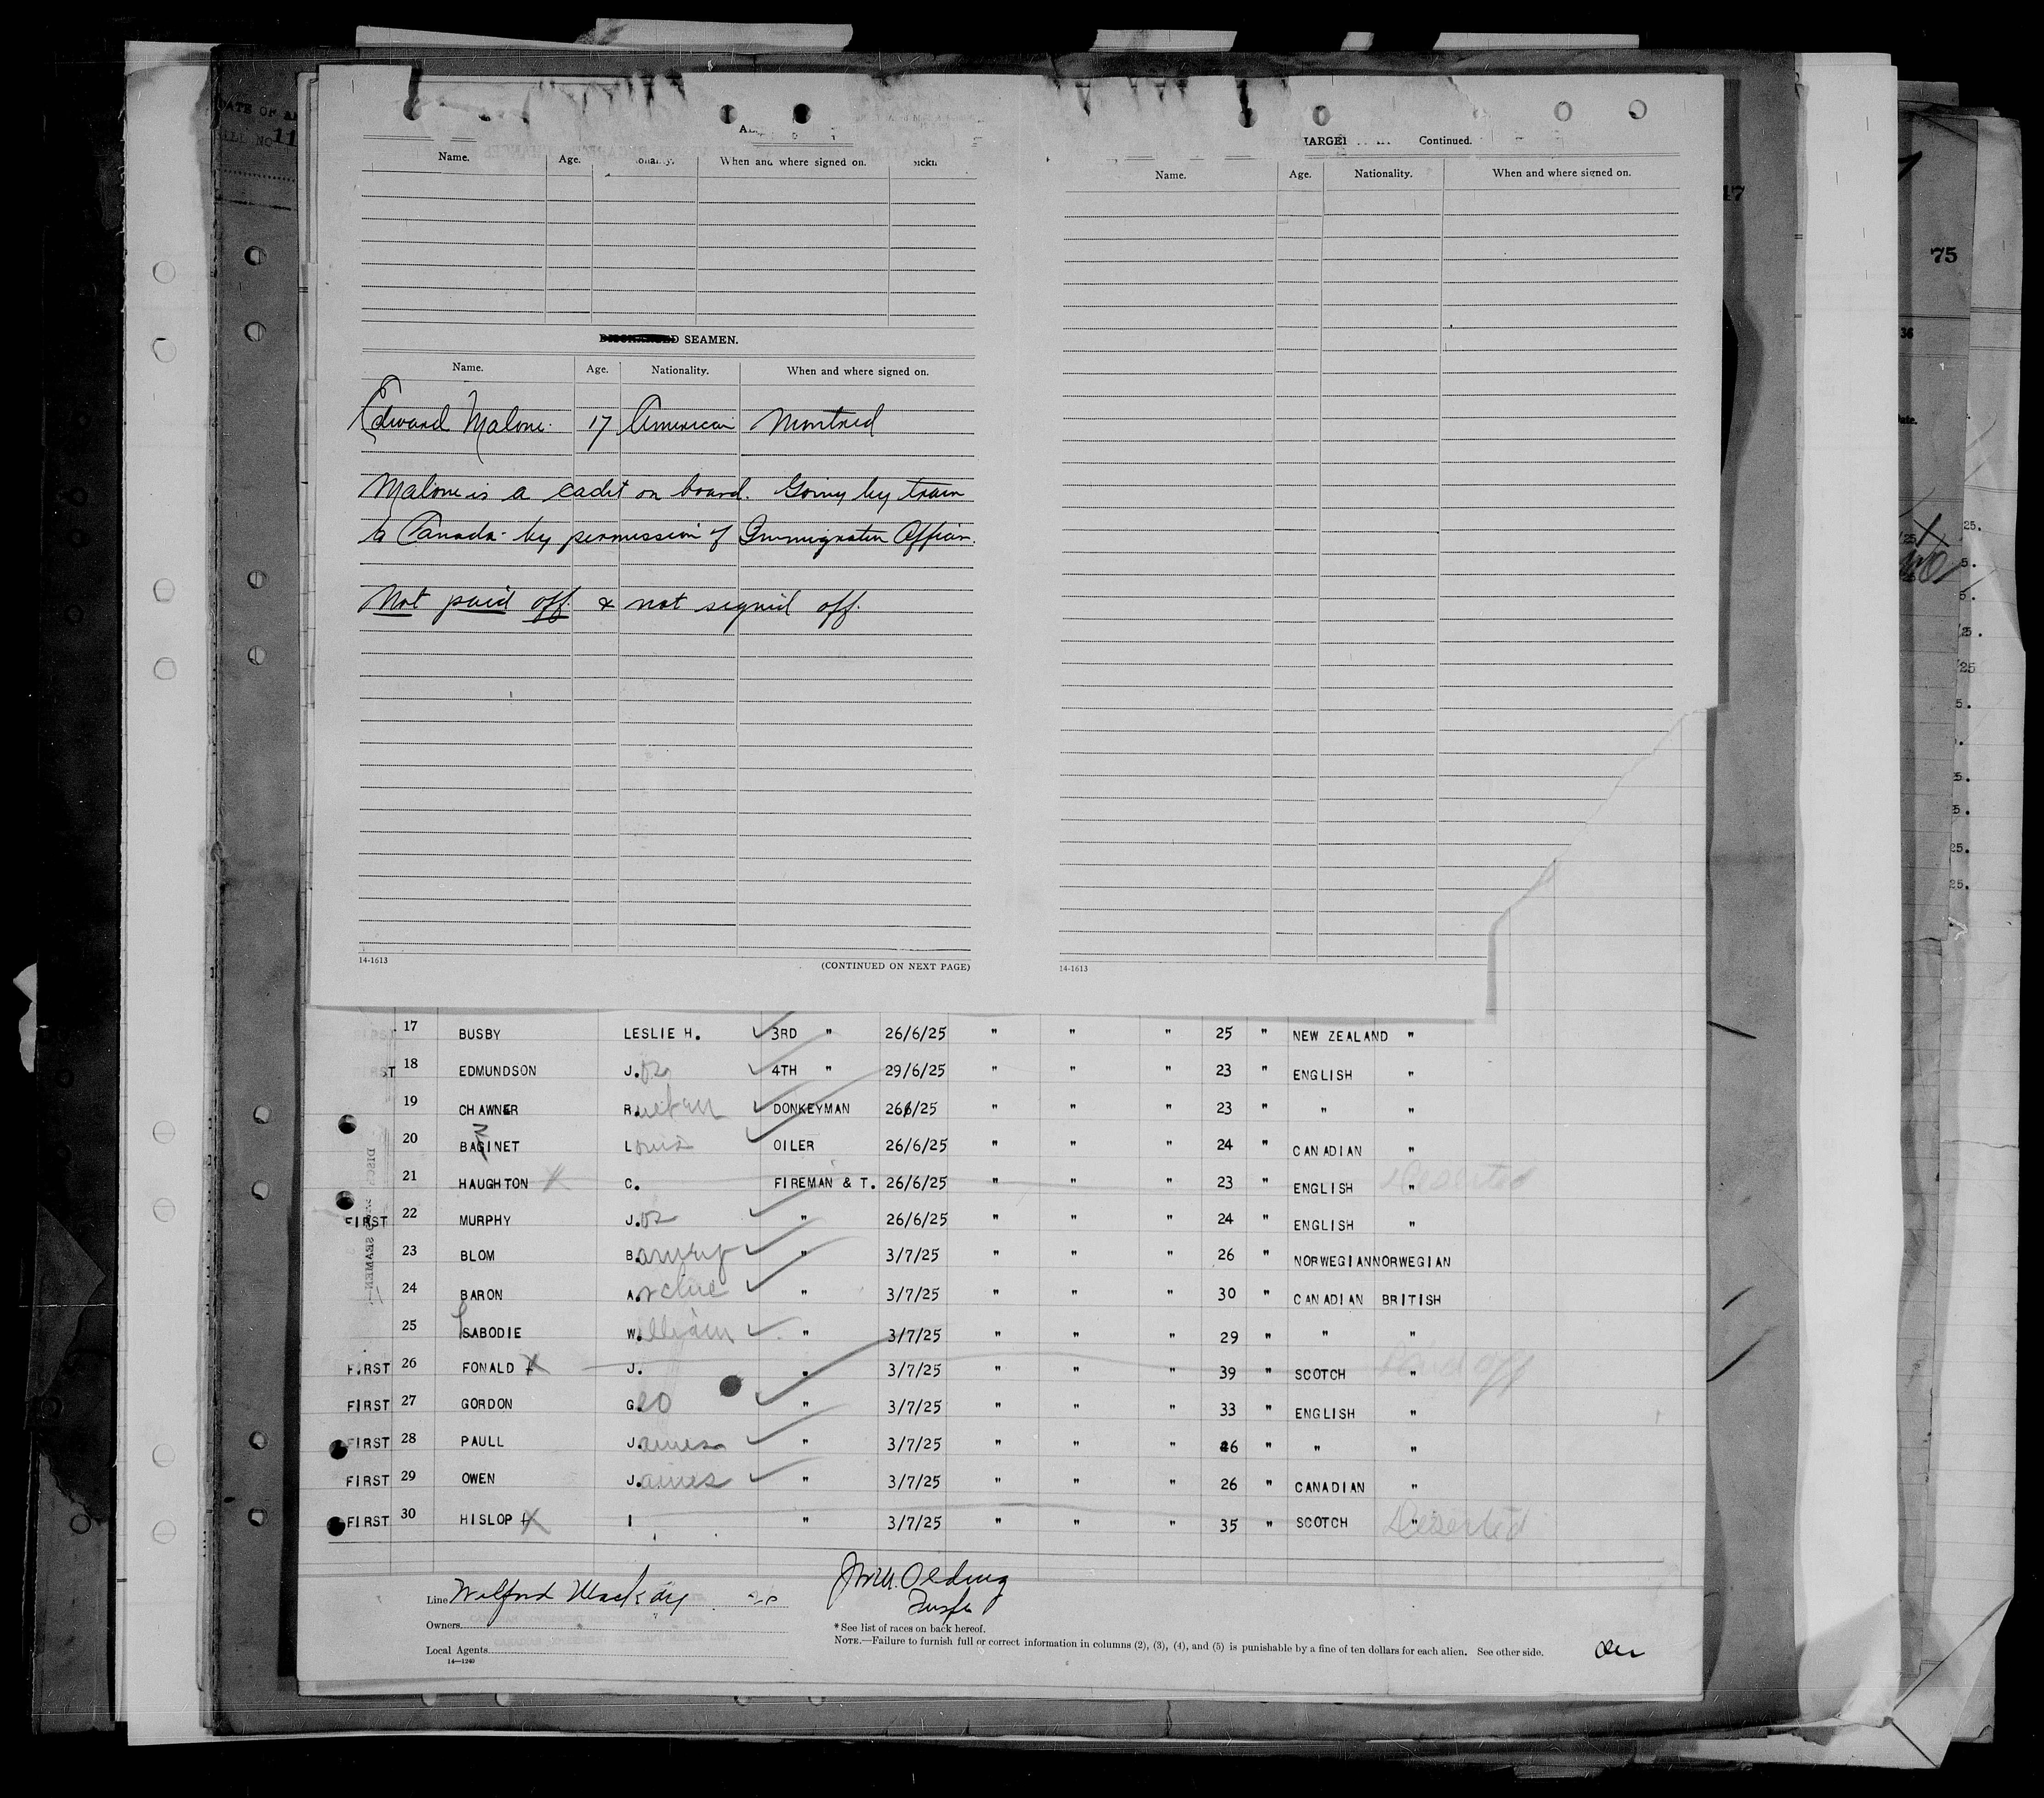 DATE OF
BILL NO 11
Name. Age. When and where signed on.
SEAMEN.
Name. Age. Nationality. When and where signed on.
Edward Malone. 17 American Montreal
Malone is a cadet on board. Going by train
to Canada - by permission of Immigration Officer.
Not paid off. & not signed off.
14-1613 (CONTINUED ON NEXT PAGE)
Continued.
Name. Age. Nationality. When and where signed on.
14-1613
17 BUSBY LESLIE H. 3RD " 26/6/25 " " " 25 " NEW ZEALAND "
18 EDMUNDSON J.os 4TH " 29/6/25 " " " 23 " ENGLISH "
19 CHAWNER R. DONKEYMAN 266/25 " " " 23 " " "
20 BAGINET Louis OILER 26/6/25 " " " 24 " CANADIAN "
21 HAUGHTON C. FIREMAN & T. 26/6/25 " " " 23 " ENGLISH " Deserted
FIRST 22 MURPHY J.os " 26/6/25 " " " 24 " ENGLISH "
23 BLOM B. " 3/7/25 " " " 26 " NORWEGIAN NORWEGIAN
24 BARON A.rchie " 3/7/25 " " " 30 " CANADIAN BRITISH
25 SABODIE W.illiam " 3/7/25 " " " 29 " " "
FIRST 26 FONALD J. " 3/7/25 " " " 39 " SCOTCH " Paid off
FIRST 27 GORDON G.eo " 3/7/25 " " " 33 " ENGLISH "
FIRST 28 PAULL J.ames " 3/7/25 " " " 46 " " "
FIRST 29 OWEN J.ames " 3/7/25 " " " 26 " CANADIAN "
FIRST 30 HISLOP I " 3/7/25 " " " 35 " SCOTCH " Deserted
Line Wilford Mackay
Owners
Local Agents
14—1240
* See list of races on back hereof.
NOTE.—Failure to furnish full or correct information in columns (2), (3), (4), and (5) is punishable by a fine of ten dollars for each alien. See other side.
75
36